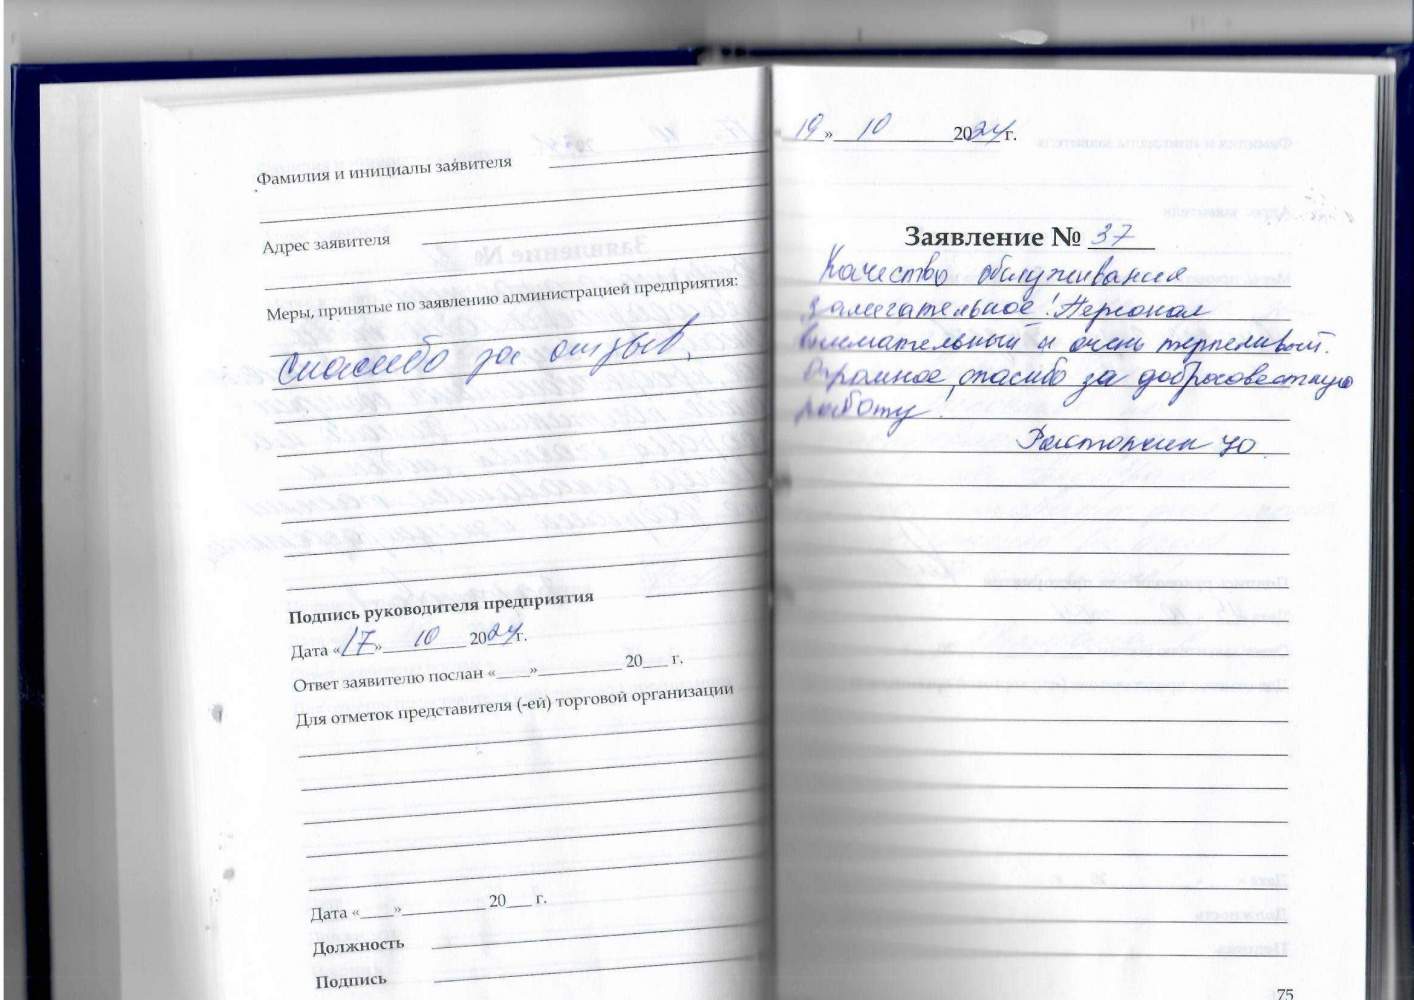 Фамилия и инициалы заявителя
Адрес заявителя
Меры, принятые по заявлению администрацией предприятия:
Спасибо за отзыв.
Подпись руководителя предприятия
Дата «17» 10 2024 г.
Ответ заявителю послан «____»__________ 20___ г.
Для отметок представителя (-ей) торговой организации
Дата «____»__________ 20___ г.
Должность
Подпись
19» 10 2024 г.
Заявление № 37
Качество обслуживания
замечательное! Персонал
внимательный и очень терпеливый.
Огромное спасибо за добросовестную
работу!
Расторгин Ю.
75